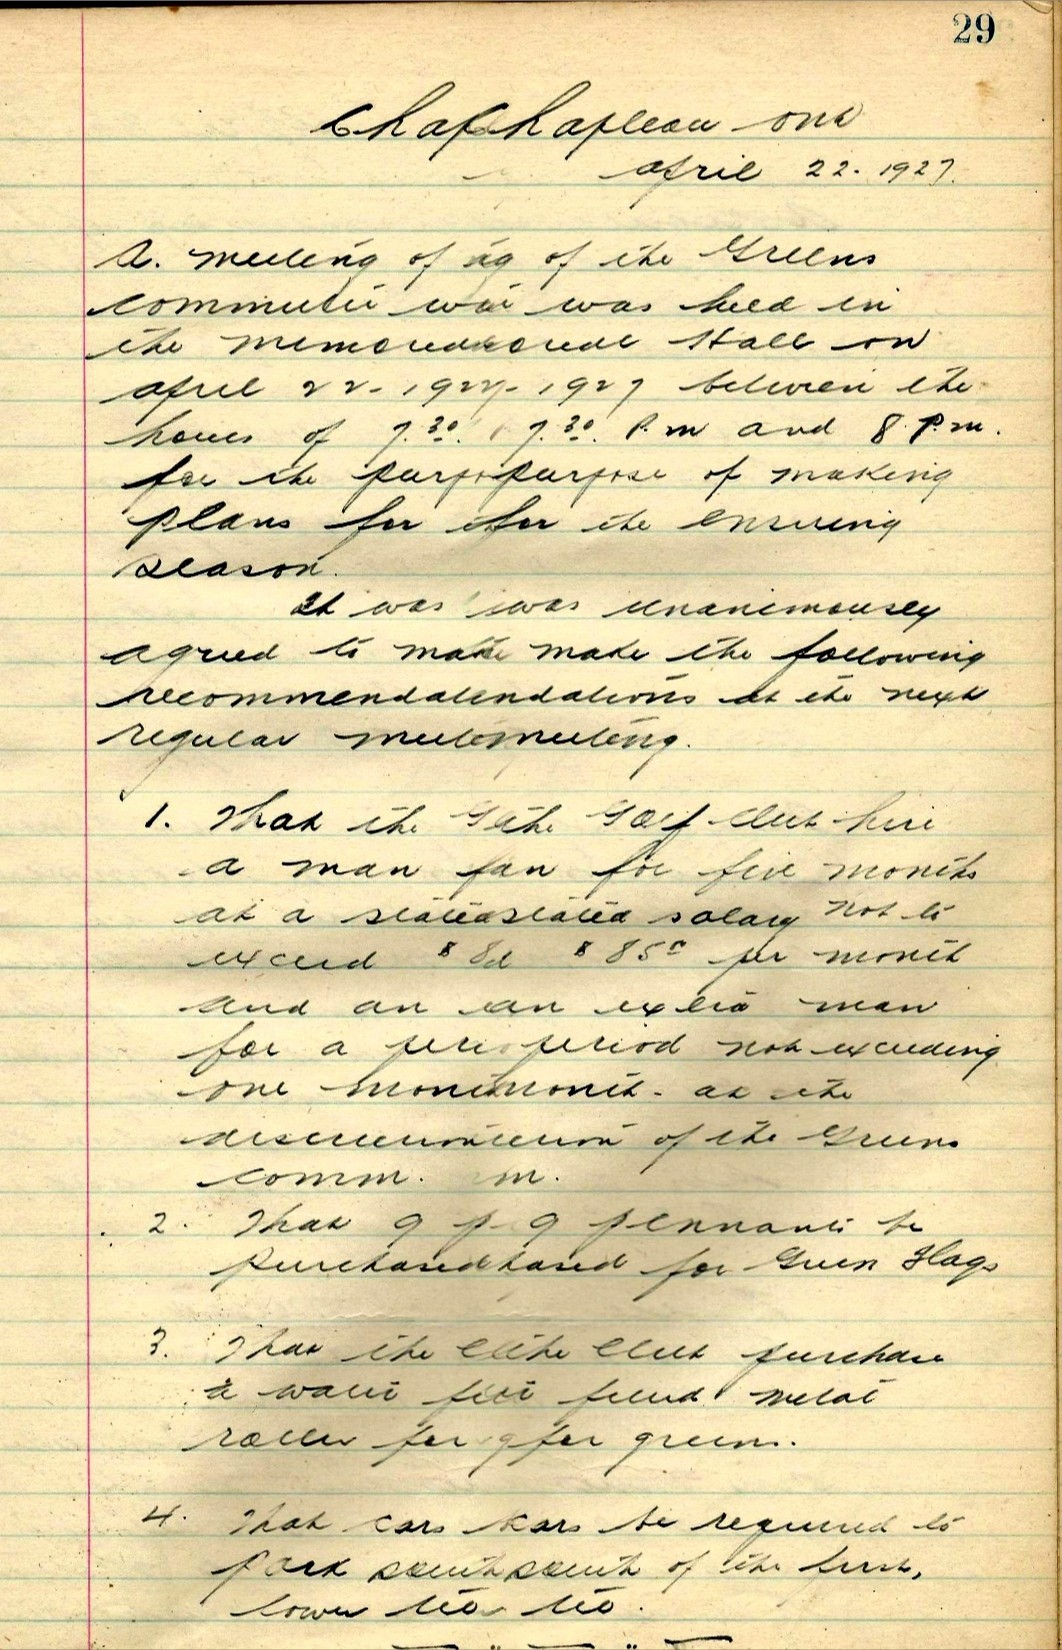 29
ChapChapleau Ont
April 22. 1927.
A. Meeting of ng of the Greens
Committee was was held in
the Memorial Hall on
April 22 - 1927 - 1927 between the
hours of 7.30. 7.30. P.m and 8 P.m.
for the purpopurpose of making
plans for for the ensuring
season.
It was was unanimously
agreed to make make the following
recommendatendations at the next
regular meetimeeting.
1. That the G the Golf Club hire
a man for for five months
at a statedstated salary not to
exceed $ 8 $ 85 per month
and an an extra man
for a perioperiod not exceeding
one montmonth - at the
of the Greens
Comm. m.
2. That 9 p 9 pennants be
purchasedhased for Green Flags
3. That the Cl the Club purchase
a water fill filled metal
roller for g for greens.
4. That cars cars be required to
park southsouth of the first,
lower tee tee.